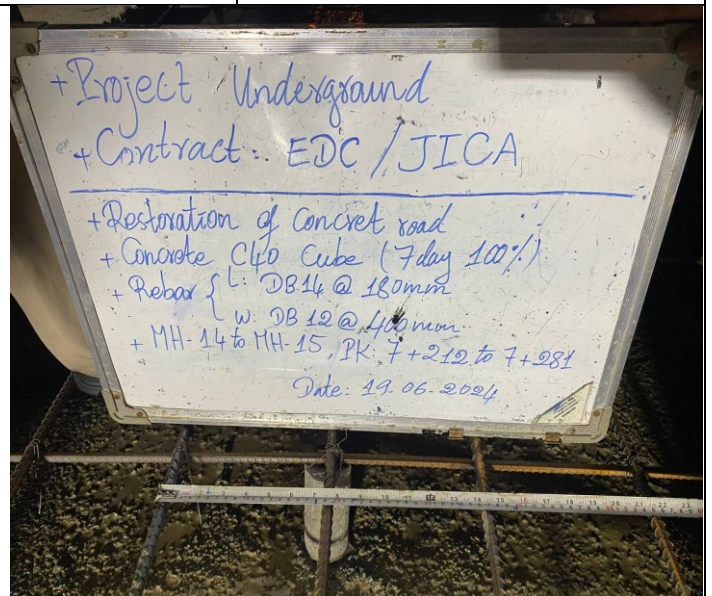 + Project Underground
+ Contract: EDC / JICA
+ Restoration of Concret road
+ Concrete C40 Cube (7day 100%)
+ Rebar { L: DB14 @ 180mm
W: DB 12 @ 400mm
+ MH-14 to MH-15, PK, 7+212 to 7+281
Date: 19-06-2024